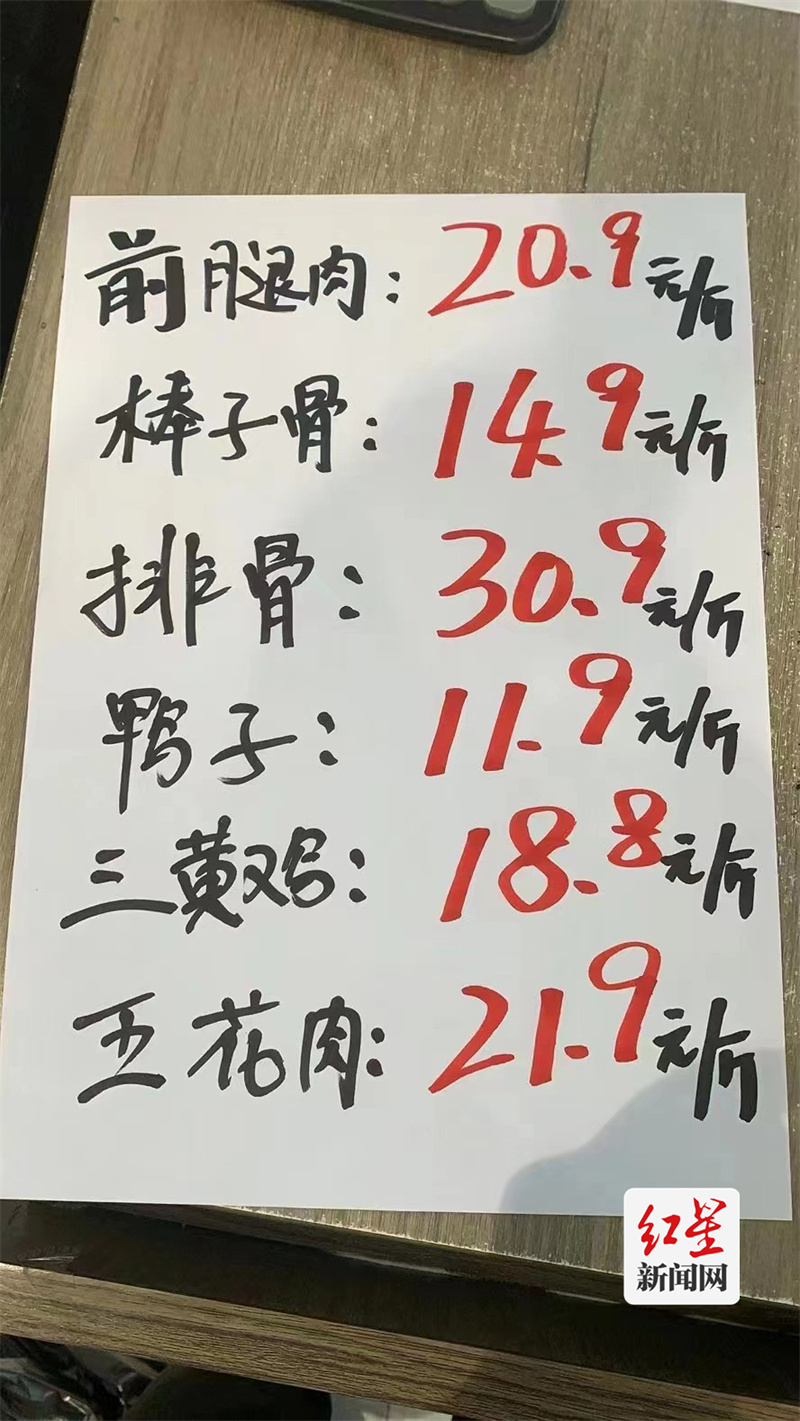 前腿肉：20.9元/斤
棒子骨：14.9元/斤
排骨：30.9元/斤
鸭子：11.9元/斤
三黄鸡：18.8元/斤
五花肉：21.9元/斤
红星
新闻网